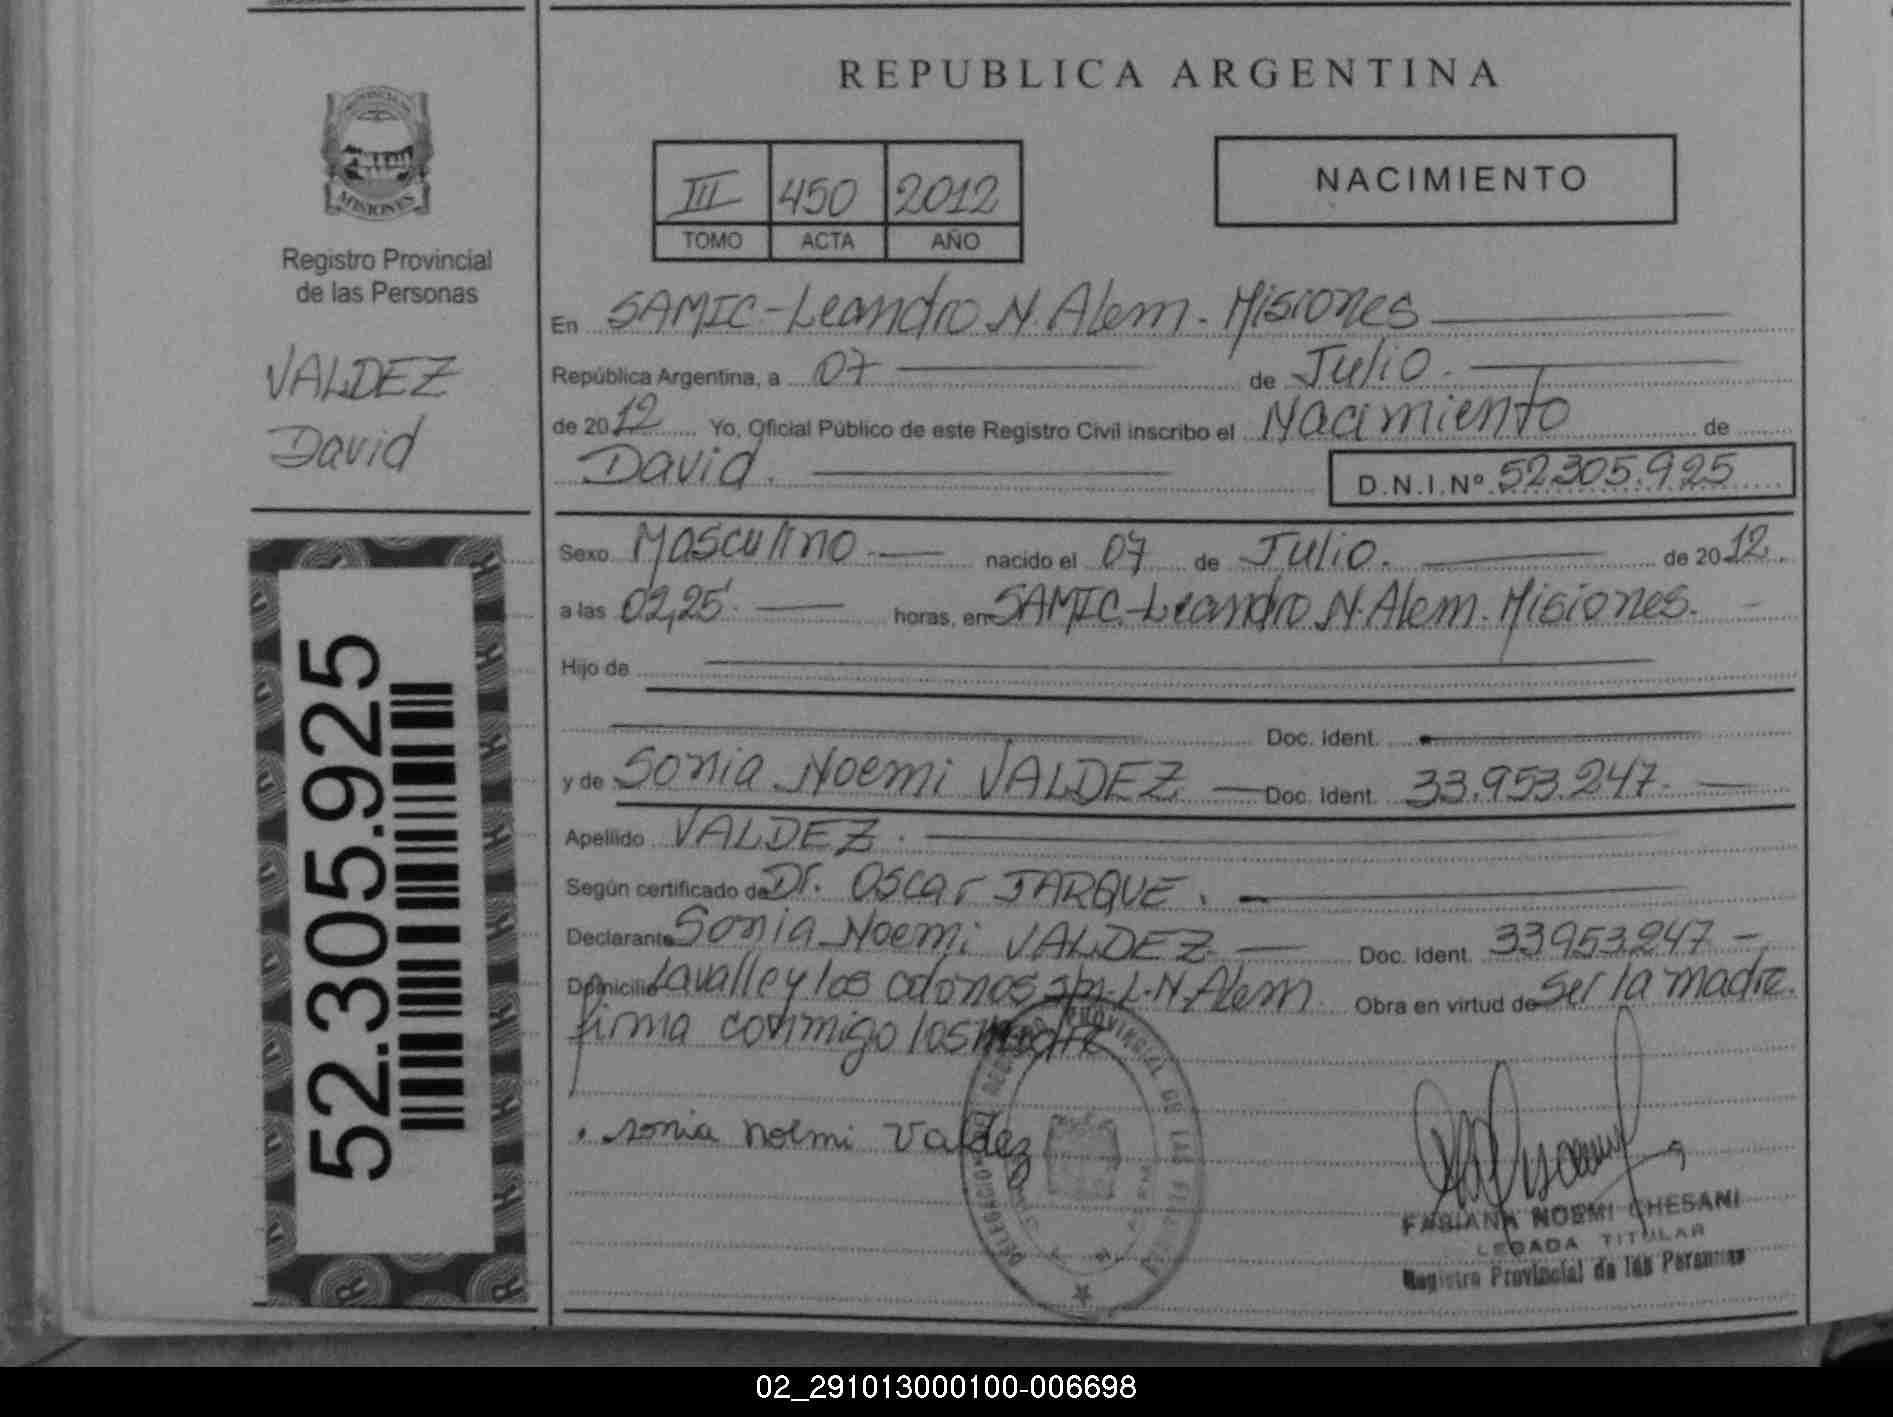 REPUBLICA ARGENTINA
MISIONES
Registro Provincial
de las Personas
VALDEZ
David
52.305.925
III 450 2012
TOMO ACTA AÑO
NACIMIENTO
En SAMIC-Leandro N. Alem. Misiones
República Argentina, a 07 de Julio.
de 2012 Yo, Oficial Público de este Registro Civil inscribo el Nacimiento de
David. D.N.I.Nº 52.305.925
Sexo Masculino nacido el 07 de Julio. de 2012
a las 02,25 horas, en SAMIC-Leandro N. Alem. Misiones.
Hijo de
Doc. Ident.
y de Sonia Noemi VALDEZ Doc. Ident. 33.953.247.
Apellido VALDEZ.
Según certificado de Dr. Oscar JARQUE.
Declarante Sonia Noemi VALDEZ Doc. Ident. 33953.247
Domicilio Lavalle y los colonos s/n. L.N. Alem Obra en virtud de Ser la madre.
firma conmigo las
. sonia noemi Valdez
DELEGACION REGISTRO PROVINCIAL DE LAS PERSONAS
FABIANA NOEMI CHESANI
TITULAR
Registro Provincial de las Personas
02_291013000100-006698